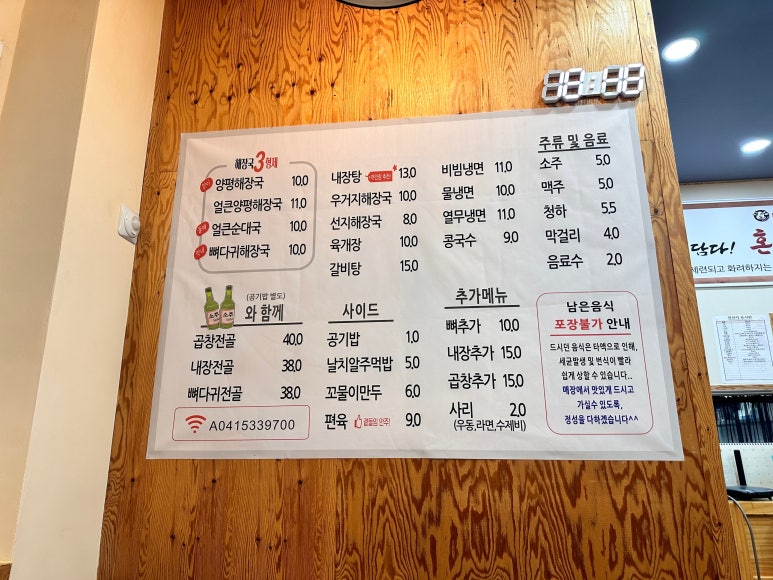 해장국 3형제
양평해장국 10,0
얼큰양평해장국 11,0
얼큰순대국 10,0
뼈다귀해장국 10,0
내장탕 13,0
우거지해장국 10,0
선지해장국 8,0
육개장 10,0
갈비탕 15,0
비빔냉면 11,0
물냉면 10,0
열무냉면 11,0
콩국수 9,0
주류 및 음료
소주 5,0
맥주 5,0
청하 5,5
막걸리 4,0
음료수 2,0
(공기밥 별도)
소주 소주 와 함께
곱창전골 40,0
내장전골 38,0
뼈다귀전골 38,0
A0415339700
사이드
공기밥 1,0
날치알주먹밥 5,0
꼬물이만두 6,0
편육 곁들임 안주! 9,0
추가메뉴
뼈추가 10,0
내장추가 15,0
곱창추가 15,0
사리 2,0
(우동,라면,수제비)
남은음식
포장불가 안내
드시던 음식은 타액으로 인해,
세균발생 및 번식이 빨라
쉽게 상할 수 있습니다..
매장에서 맛있게 드시고
가실수 있도록,
정성을 다하겠습니다^^
88:88
담다! 혼
세련되고 화려하지는